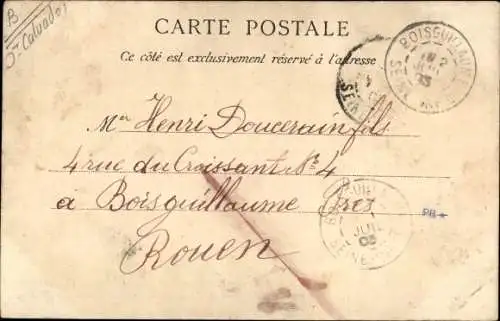 B
Calvados
CARTE POSTALE
Ce côté est exclusivement réservé à l'adresse
BOISGUILLAUME
2
03
SEINE
Mr Henri Doucerain fils
4 rue du Croissant No 4
à Boisguillaume près
Rouen
JUIL
03
SEINE